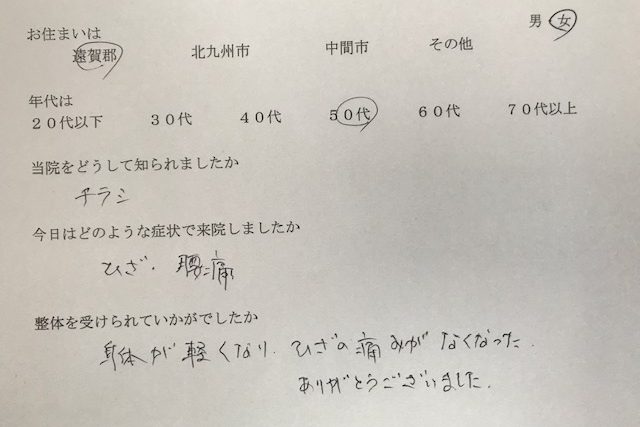 男 女
お住まいは
遠賀郡 北九州市 中間市 その他
年代は
20代以下 30代 40代 50代 60代 70代以上
当院をどうして知られましたか
チラシ
今日はどのような症状で来院しましたか
ひざ、腰痛
整体を受けられていかがでしたか
身体が軽くなり、ひざの痛みがなくなった。
ありがとうございました。